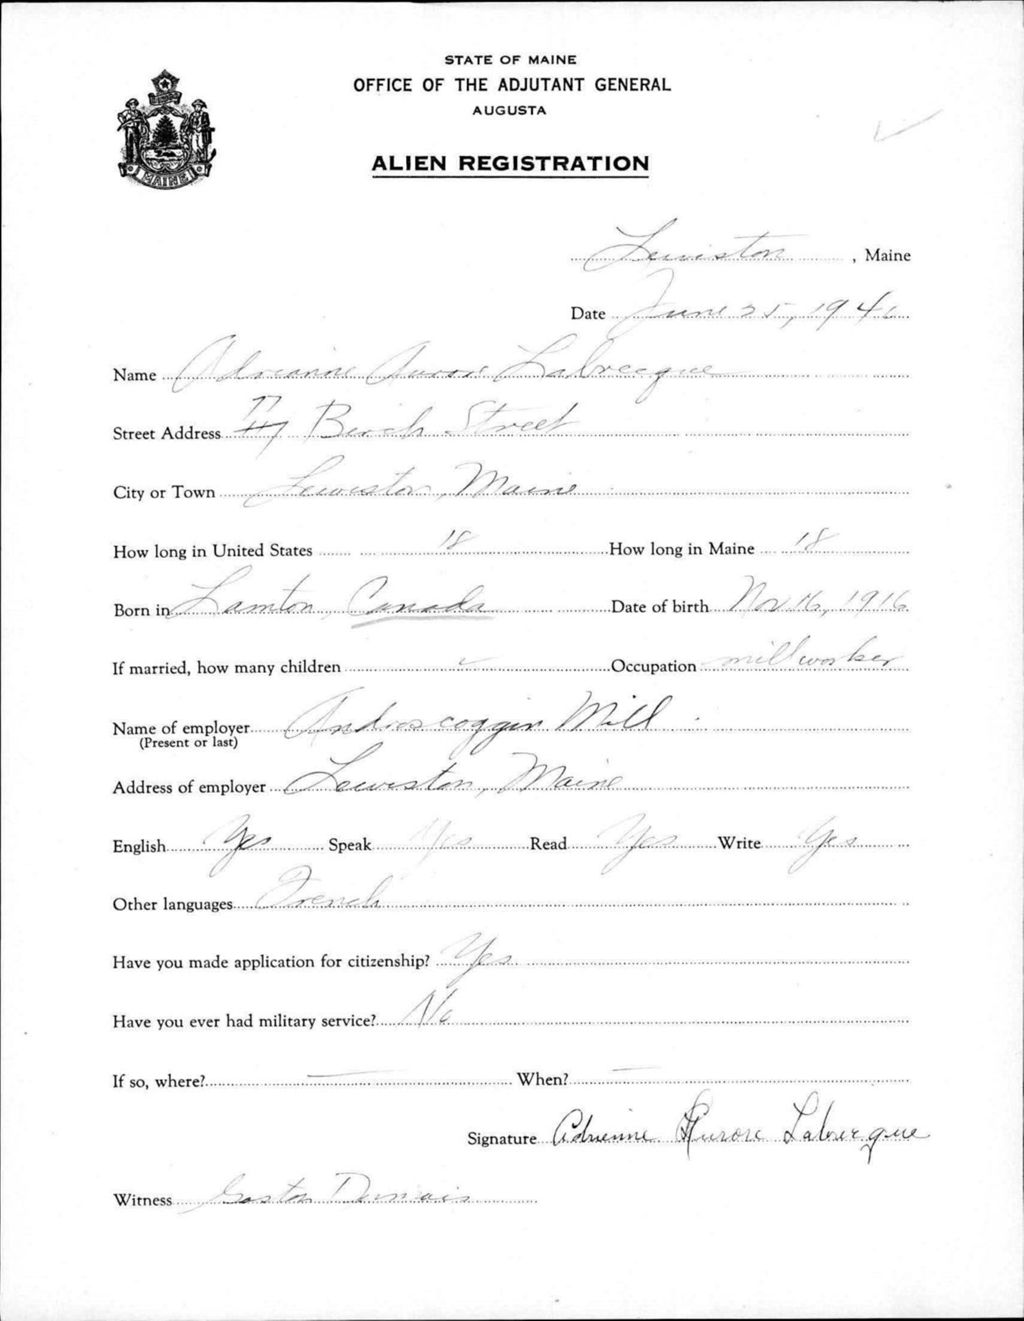 STATE OF MAINE
OFFICE OF THE ADJUTANT GENERAL
AUGUSTA
ALIEN REGISTRATION
MAINE
Lewiston, Maine
Date June 25, 1940
Name Adrianne Aurore Labrecque
Street Address Birch Street
City or Town Lewiston, Maine
How long in United States 18 How long in Maine 18
Born in Lamton, Canada Date of birth Nov 16, 1916
If married, how many children Occupation millworker
Name of employer Androscoggin Mill
(Present or last)
Address of employer Lewiston, Maine
English Yes Speak Yes Read Yes Write Yes
Other languages French
Have you made application for citizenship? Yes
Have you ever had military service? No
If so, where? — When? —
Signature Adrienne Aurore Labrecque
Witness Gaston Dumais